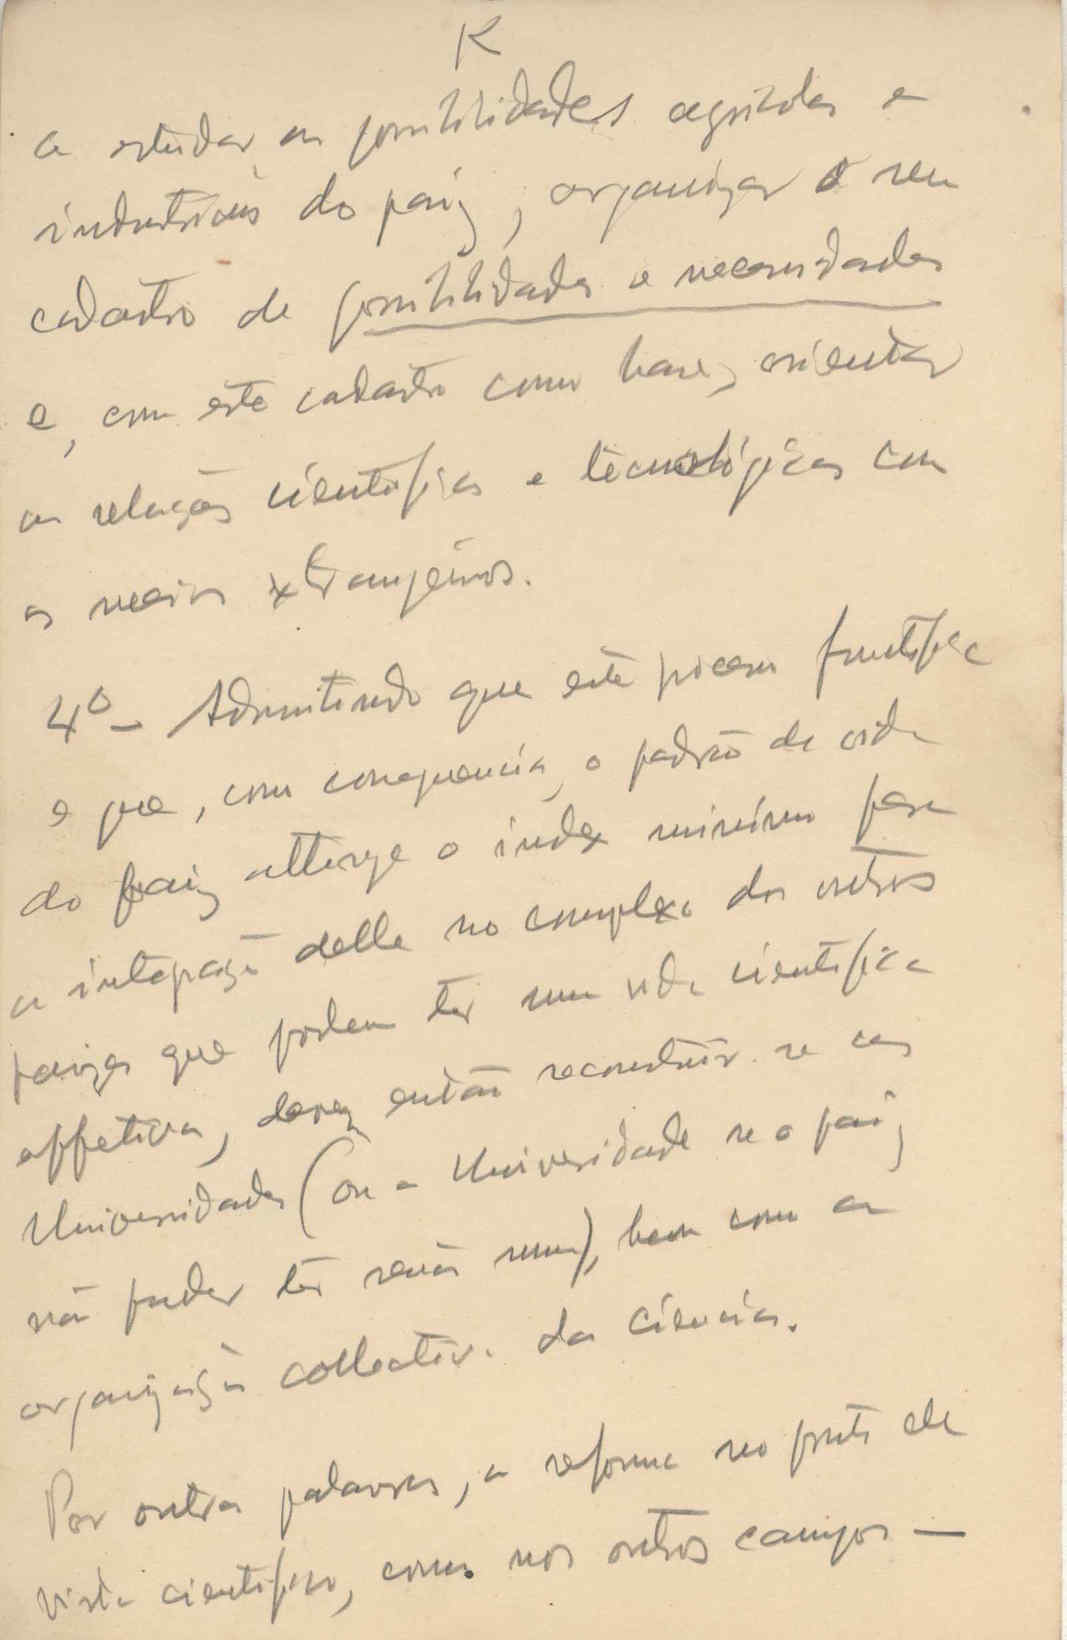 K
a estudar as possibilidades agricolas e
industriais do paiz, organizar o seu
cadastro de possibilidades e necessidades
e, com este cadastro como base, orientar
as relações cientificas e tecnológicas com
os meios extrangeiros.
4º - Admitindo que este processo fructifica
e que, com consequencia, o padrão de vida
do paiz attinge o index minimo para
a integração delle no complexo dos outros
paizes que podem ter uma vida cientifica
effetiva, devem então reconstruir-se as
Universidades (ou a Universidade se o paiz
não puder ter senão uma), bem como a
organização collectiva da ciencia.
Por outras palavras, a reforma no ponto de
vista cientifico, como nos outros campos —